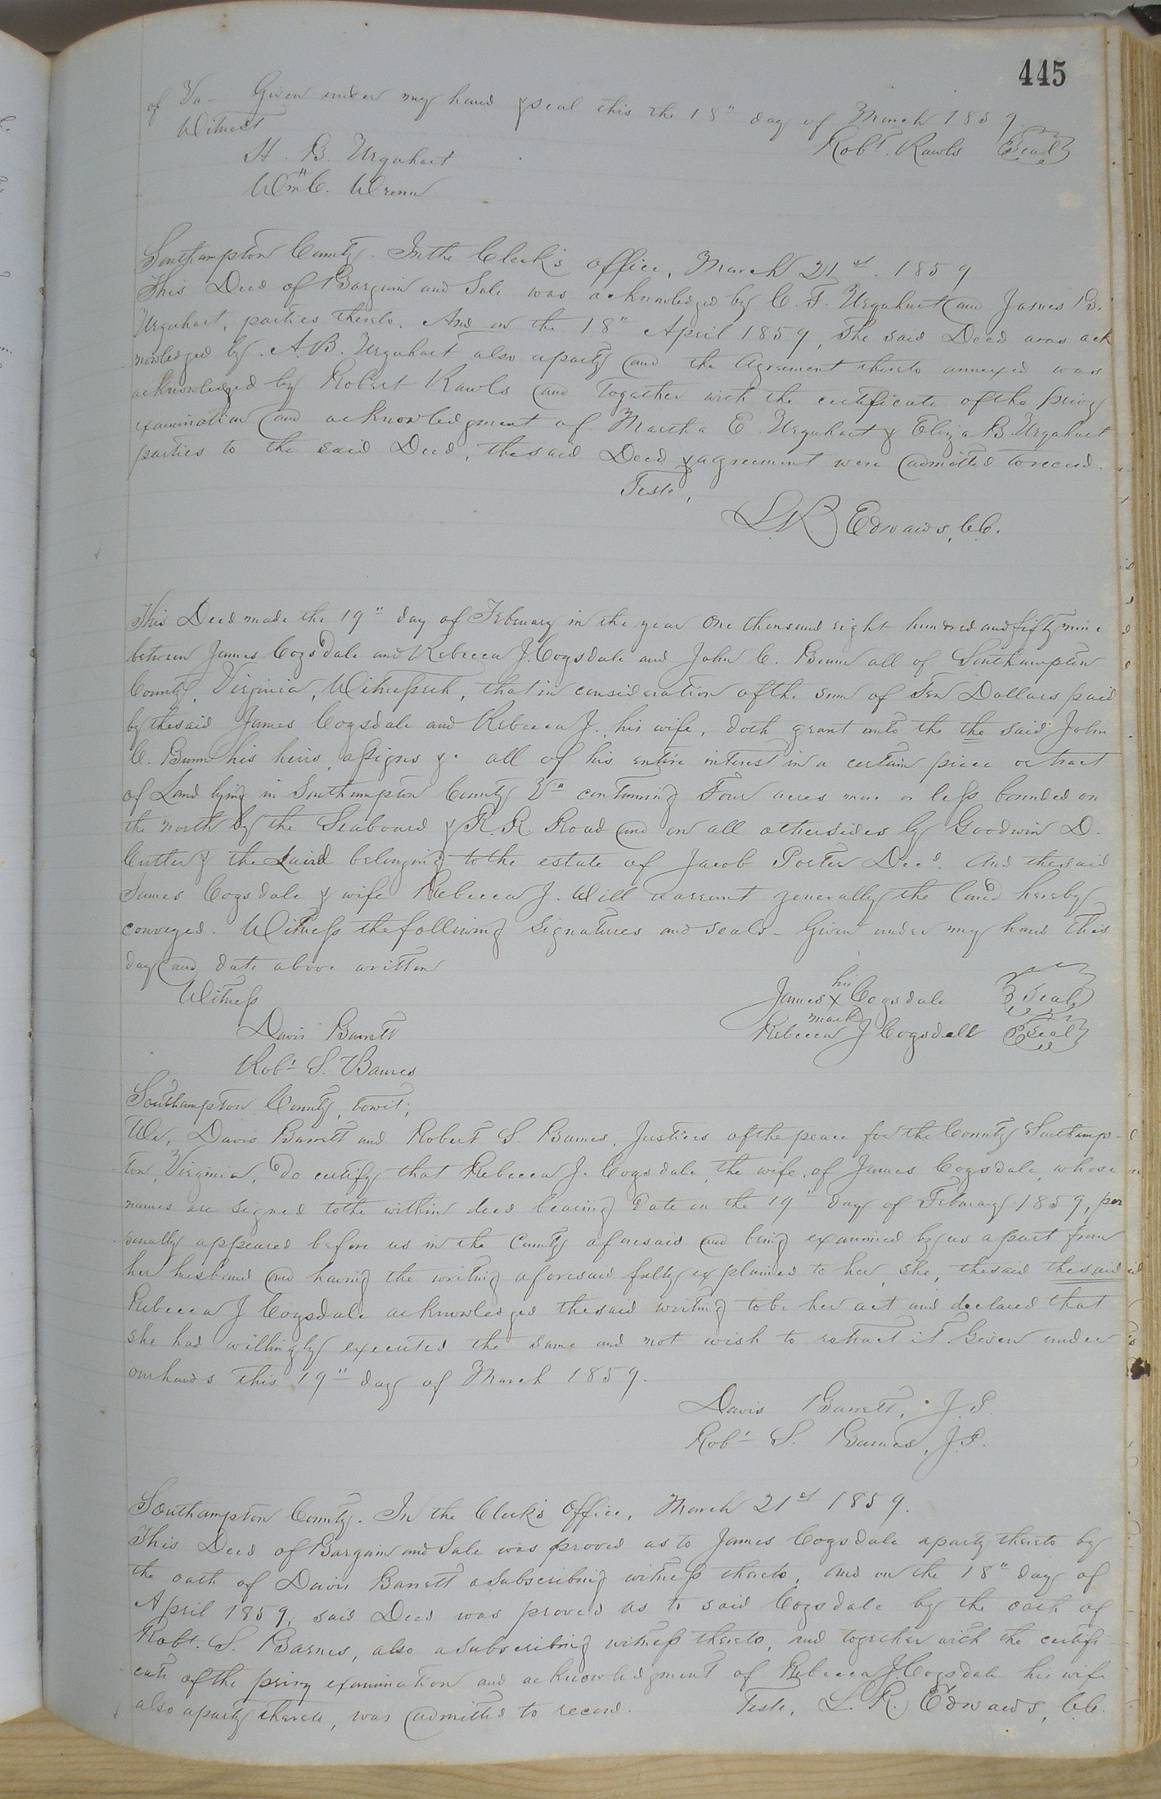 445
of Va- Given under my hand & seal this the 18" day of March 1859
Witnest
Robt. Rawls Seal
H. B. Urquhart
Wm C. Wrenn
Southampton County. In the Clerk's office, March 21st. 1859
This Deed of Bargain and Sale was acknowledged by C. F. Urquhart and James B.
Urquhart, parties thereto. And on the 18" April 1859, the said Deed was ack
nowledged by A. B. Urquhart also a party and the Agreement thereto annexed was
acknowledged by Robert Rawls and together with the certificate of the privy
examination and acknowledgment of Martha E. Urquhart & Eliza B. Urquhart
parties to the said Deed, the said Deed & agreement were admitted to record.
Teste,
L. R. Edwards, C.C.
This Deed made the 19" day of February in the year One thousand eight hundred and fifty nine
between James Cogsdale and Rebecca J. Cogsdale and John C. Bunn all of Southampton
County, Virginia, Witnesseth, that in consideration of the sum of Ten Dollars paid
by the said James Cogsdale and Rebecca J. his wife, doth grant unto the the said John
C. Bunn his heirs, assigns &c all of his entire interest in a certain piece or tract
of Land lying in Southampton County Va containing Four acres more or less bounded on
the north by the Seaboard & R. R. Road and on all other sides by Goodwin D.
Cutler & the Laird belonging to the estate of Jacob Porter Decd. And the said
James Cogsdale & wife Rebecca J. Will warrant generally the land hereby
conveyed. Witness the following signatures and seals- Given under my hand this
day and date above written
Witness
his
James X Cogsdale Seal
mark
Davis Barrett
Rebecca J Cogsdell Seal
Robt S. Barnes
Southampton County, towit;
We, Davis Barrett and Robert S. Barnes, Justices of the peace for the County Southamp-
ton, Virginia, do certify that Rebecca J. Cogsdale, the wife of James Cogsdale, whose
names are signed to the within deed bearing date on the 19" day of February 1859, per
sonally appeared before us in the County aforesaid and being examined by us apart from
her husband and having the writing aforesaid fully explained to her, she, the said the said
Rebecca J Cogsdale acknowledged the said writing to be her act and declared that
she had willingly executed the same and not wish to retract it Given under
our hands this 19" day of March 1859.
Davis Barrett, J.P.
Robt S. Barnes, J.P.
Southampton County. In the Clerk's Office, March 21st 1859.
This Deed of Bargain and Sale was proved as to James Cogsdale a party thereto by
the oath of Davis Barrett a subscribing witness thereto, and on the 18" day of
April 1859, said Deed was proved as to said Cogsdale by the oath of
Robt. S. Barnes, also a subscribing witness thereto, and together with the certifi
cate of the privy examination and acknowledgment of Rebecca J. Cogsdale his wife
also a party thereto, was admitted to record.
Teste, L. R. Edwards, C.C.